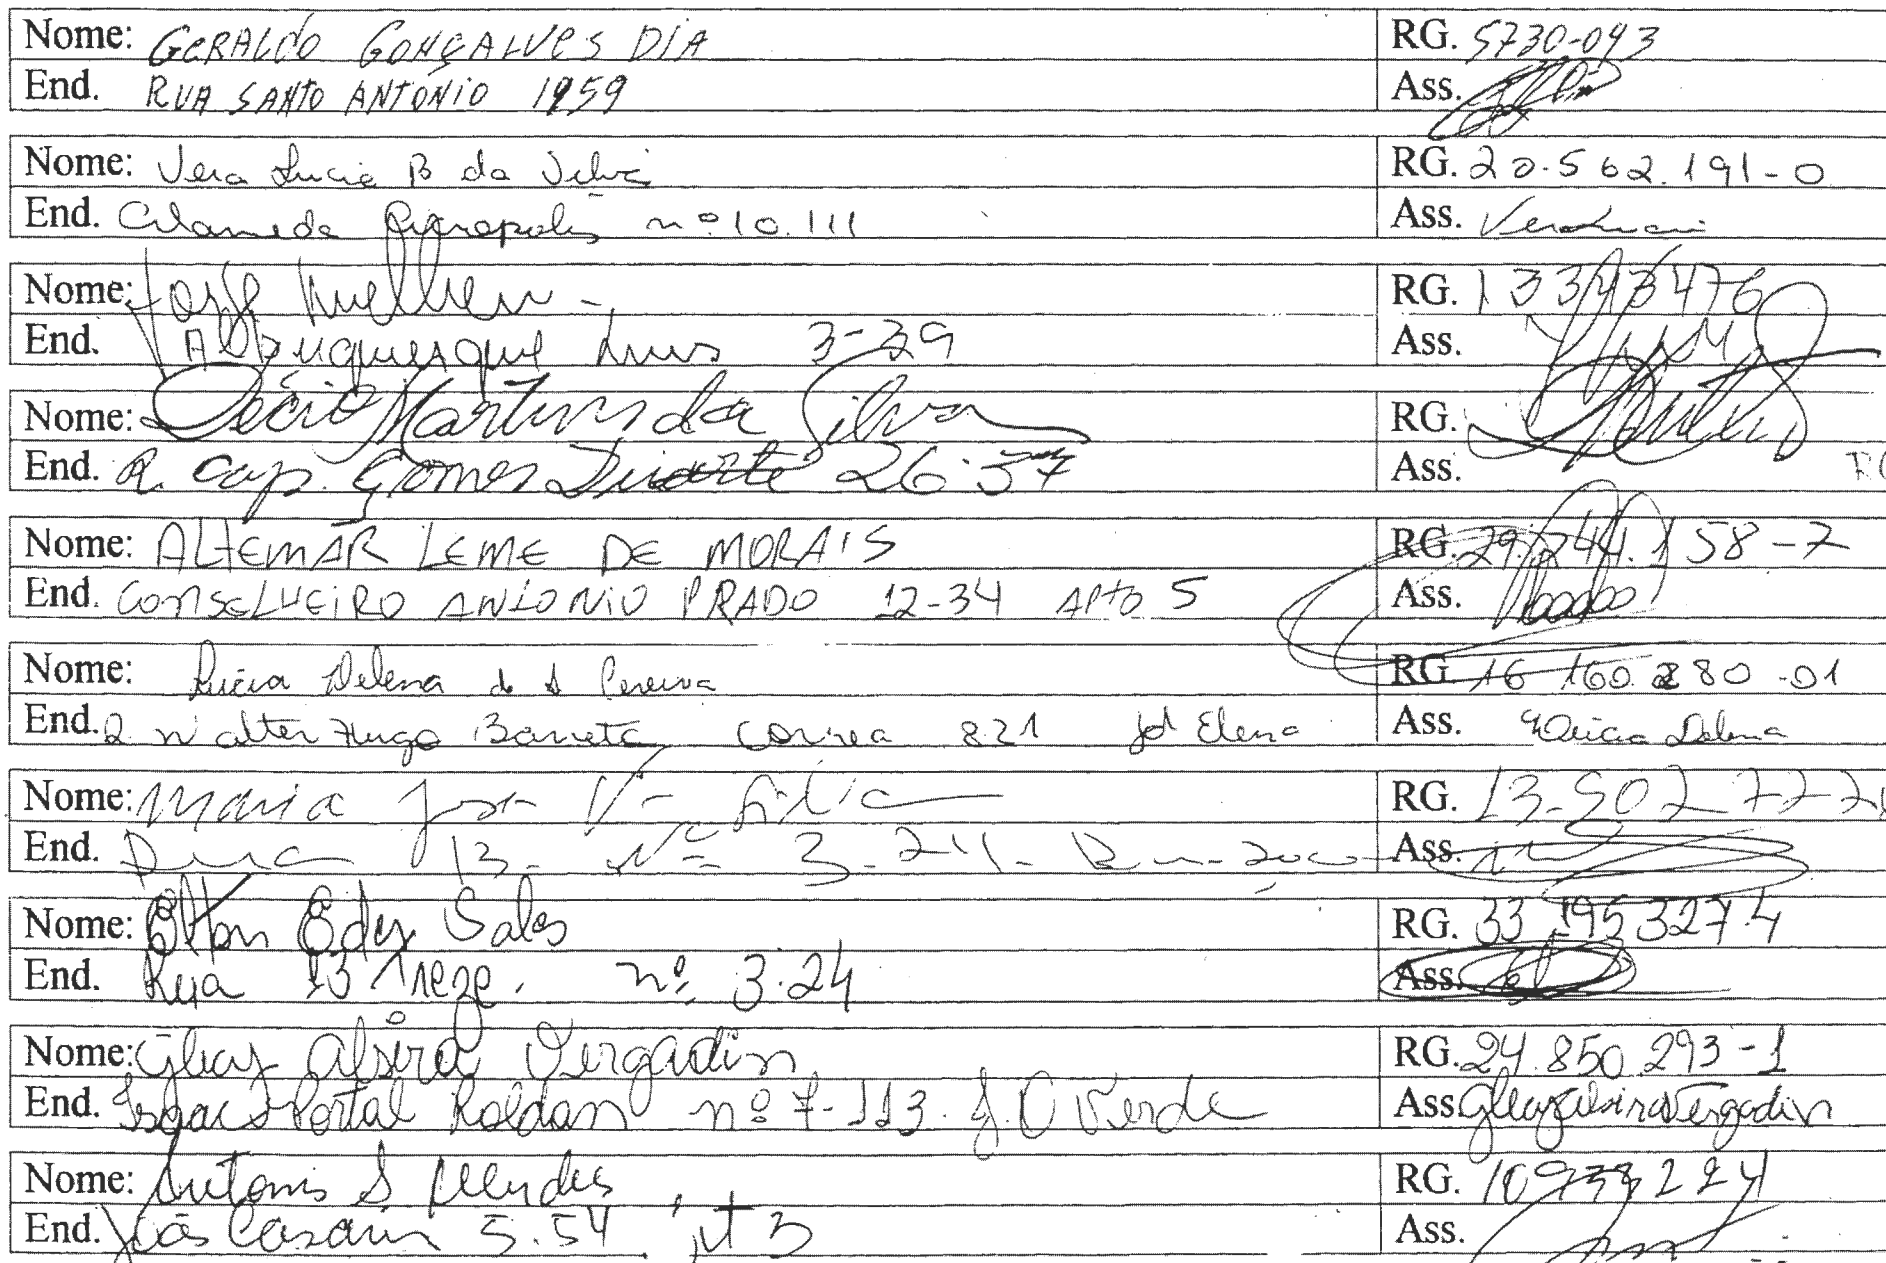 Nome: GERALDO GONÇALVES DIA RG. 5730-093
End. RUA SANTO ANTÔNIO 1959 Ass.
Nome: Vera Lucia B da Silva RG. 20.562.191-0
End. Alameda nº 10.111 Ass. Vera Lucia
Nome: RG. 13343476
End. Albuquerque Lins 3-39 Ass.
Nome: Décio Martins da Silva RG.
End. R. Cap. Gomes Duarte 26-37 Ass.
Nome: ALTEMAR LEME DE MORAIS RG. 29.744.158-7
End. CONSELHEIRO ANTONIO PRADO 12-34 APTO 5 Ass.
Nome: Lúcia Helena de S Pereira RG 16 160 280 -01
End. R Walter Hugo Barreto Correa 821 Jd Elena Ass. Lúcia Helena
Nome: Maria RG. 13-902 772
End. Rua 13- Nº 3-24- Ass.
Nome: Elton Eder Sales RG. 33 195 327 4
End. Rua 13 Treze. nº. 3.24 Ass.
Nome: Vergadin RG. 24.850.293-1
End. Isaac Portal Roldan nº 7-113. J. O Verde Ass. Vergadin
Nome: Antonio S Mendes RG.
End. João Casarin 5.54 Ass.